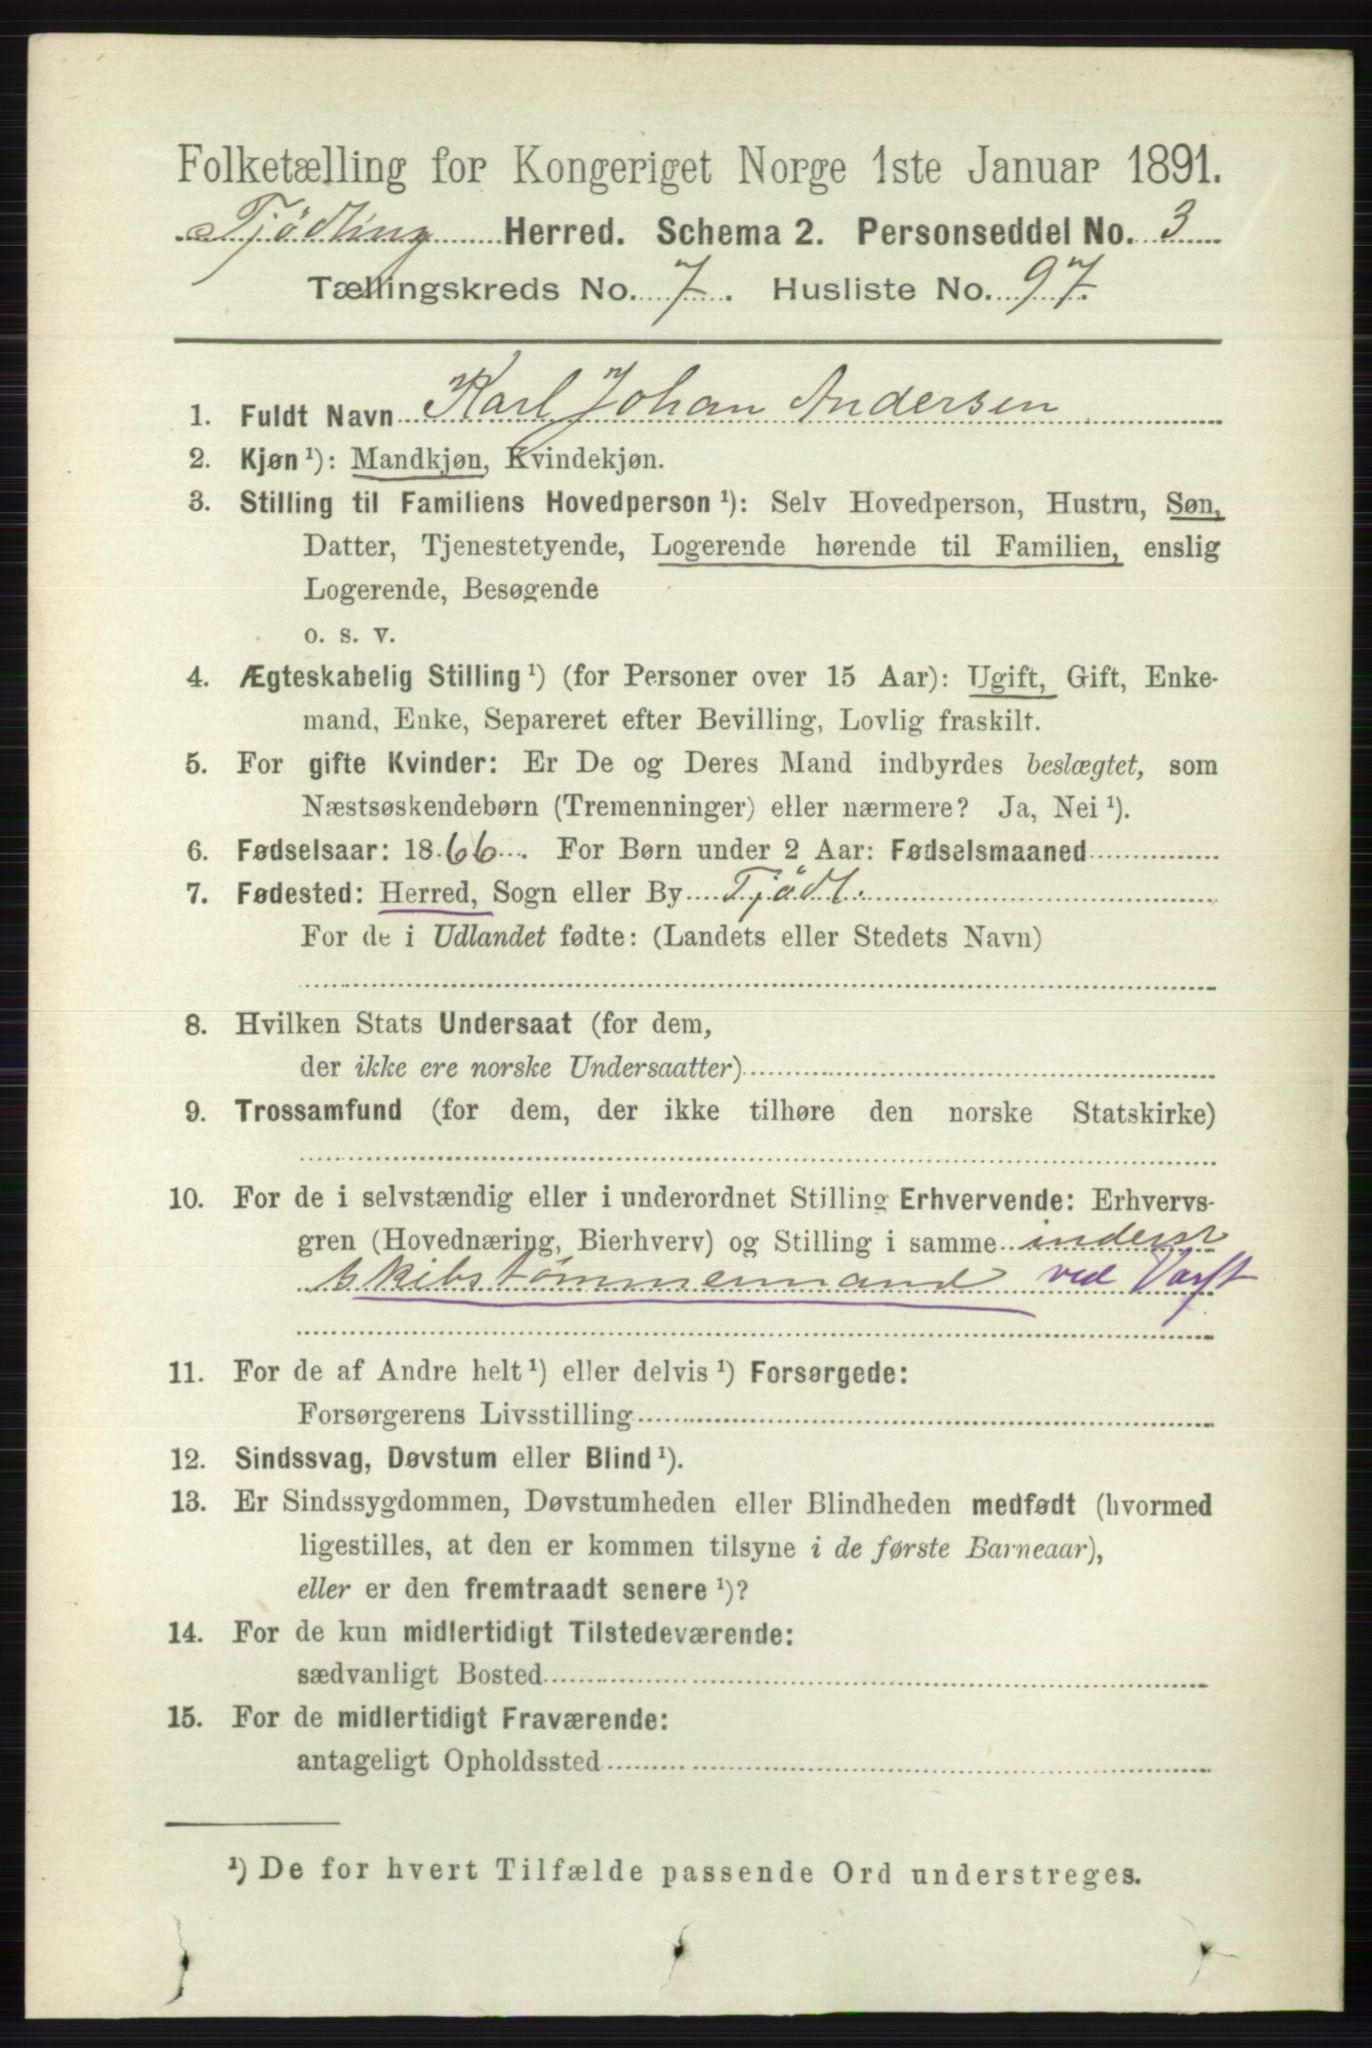 Folketælling for Kongeriget Norge 1ste Januar 1891.
Tjödling Herred. Schema 2. Personseddel No. 3
Tællingskreds No. 7. Husliste No. 97.
1. Fuldt Navn Karl Johan Andersen
2. Kjøn ¹): Mandkjøn, Kvindekjøn.
3. Stilling til Familiens Hovedperson ¹): Selv Hovedperson, Hustru, Søn,
Datter, Tjenestetyende, Logerende hørende til Familien, enslig
Logerende, Besøgende
o. s. v.
4. Ægteskabelig Stilling ¹) (for Personer over 15 Aar): Ugift, Gift, Enke-
mand, Enke, Separeret efter Bevilling, Lovlig fraskilt.
5. For gifte Kvinder: Er De og Deres Mand indbyrdes beslægtet, som
Næstsøskendebørn (Tremenninger) eller nærmere? Ja, Nei ¹).
6. Fødselsaar: 1866. For Børn under 2 Aar: Fødselsmaaned
7. Fødested: Herred, Sogn eller By Tjödl.
For de i Udlandet fødte: (Landets eller Stedets Navn)
8. Hvilken Stats Undersaat (for dem,
der ikke ere norske Undersaatter)
9. Trossamfund (for dem, der ikke tilhøre den norske Statskirke)
10. For de i selvstændig eller i underordnet Stilling Erhvervende: Erhvervs-
gren (Hovednæring, Bierhverv) og Stilling i samme inderst
skibstömmermand ved Værft
11. For de af Andre helt ¹) eller delvis ¹) Forsørgede:
Forsørgerens Livsstilling
12. Sindssvag, Døvstum eller Blind ¹).
13. Er Sindssygdommen, Døvstumheden eller Blindheden medfødt (hvormed
ligestilles, at den er kommen tilsyne i de første Barneaar),
eller er den fremtraadt senere ¹)?
14. For de kun midlertidigt Tilstedeværende:
sædvanligt Bosted
15. For de midlertidigt Fraværende:
antageligt Opholdssted
¹) De for hvert Tilfælde passende Ord understreges.